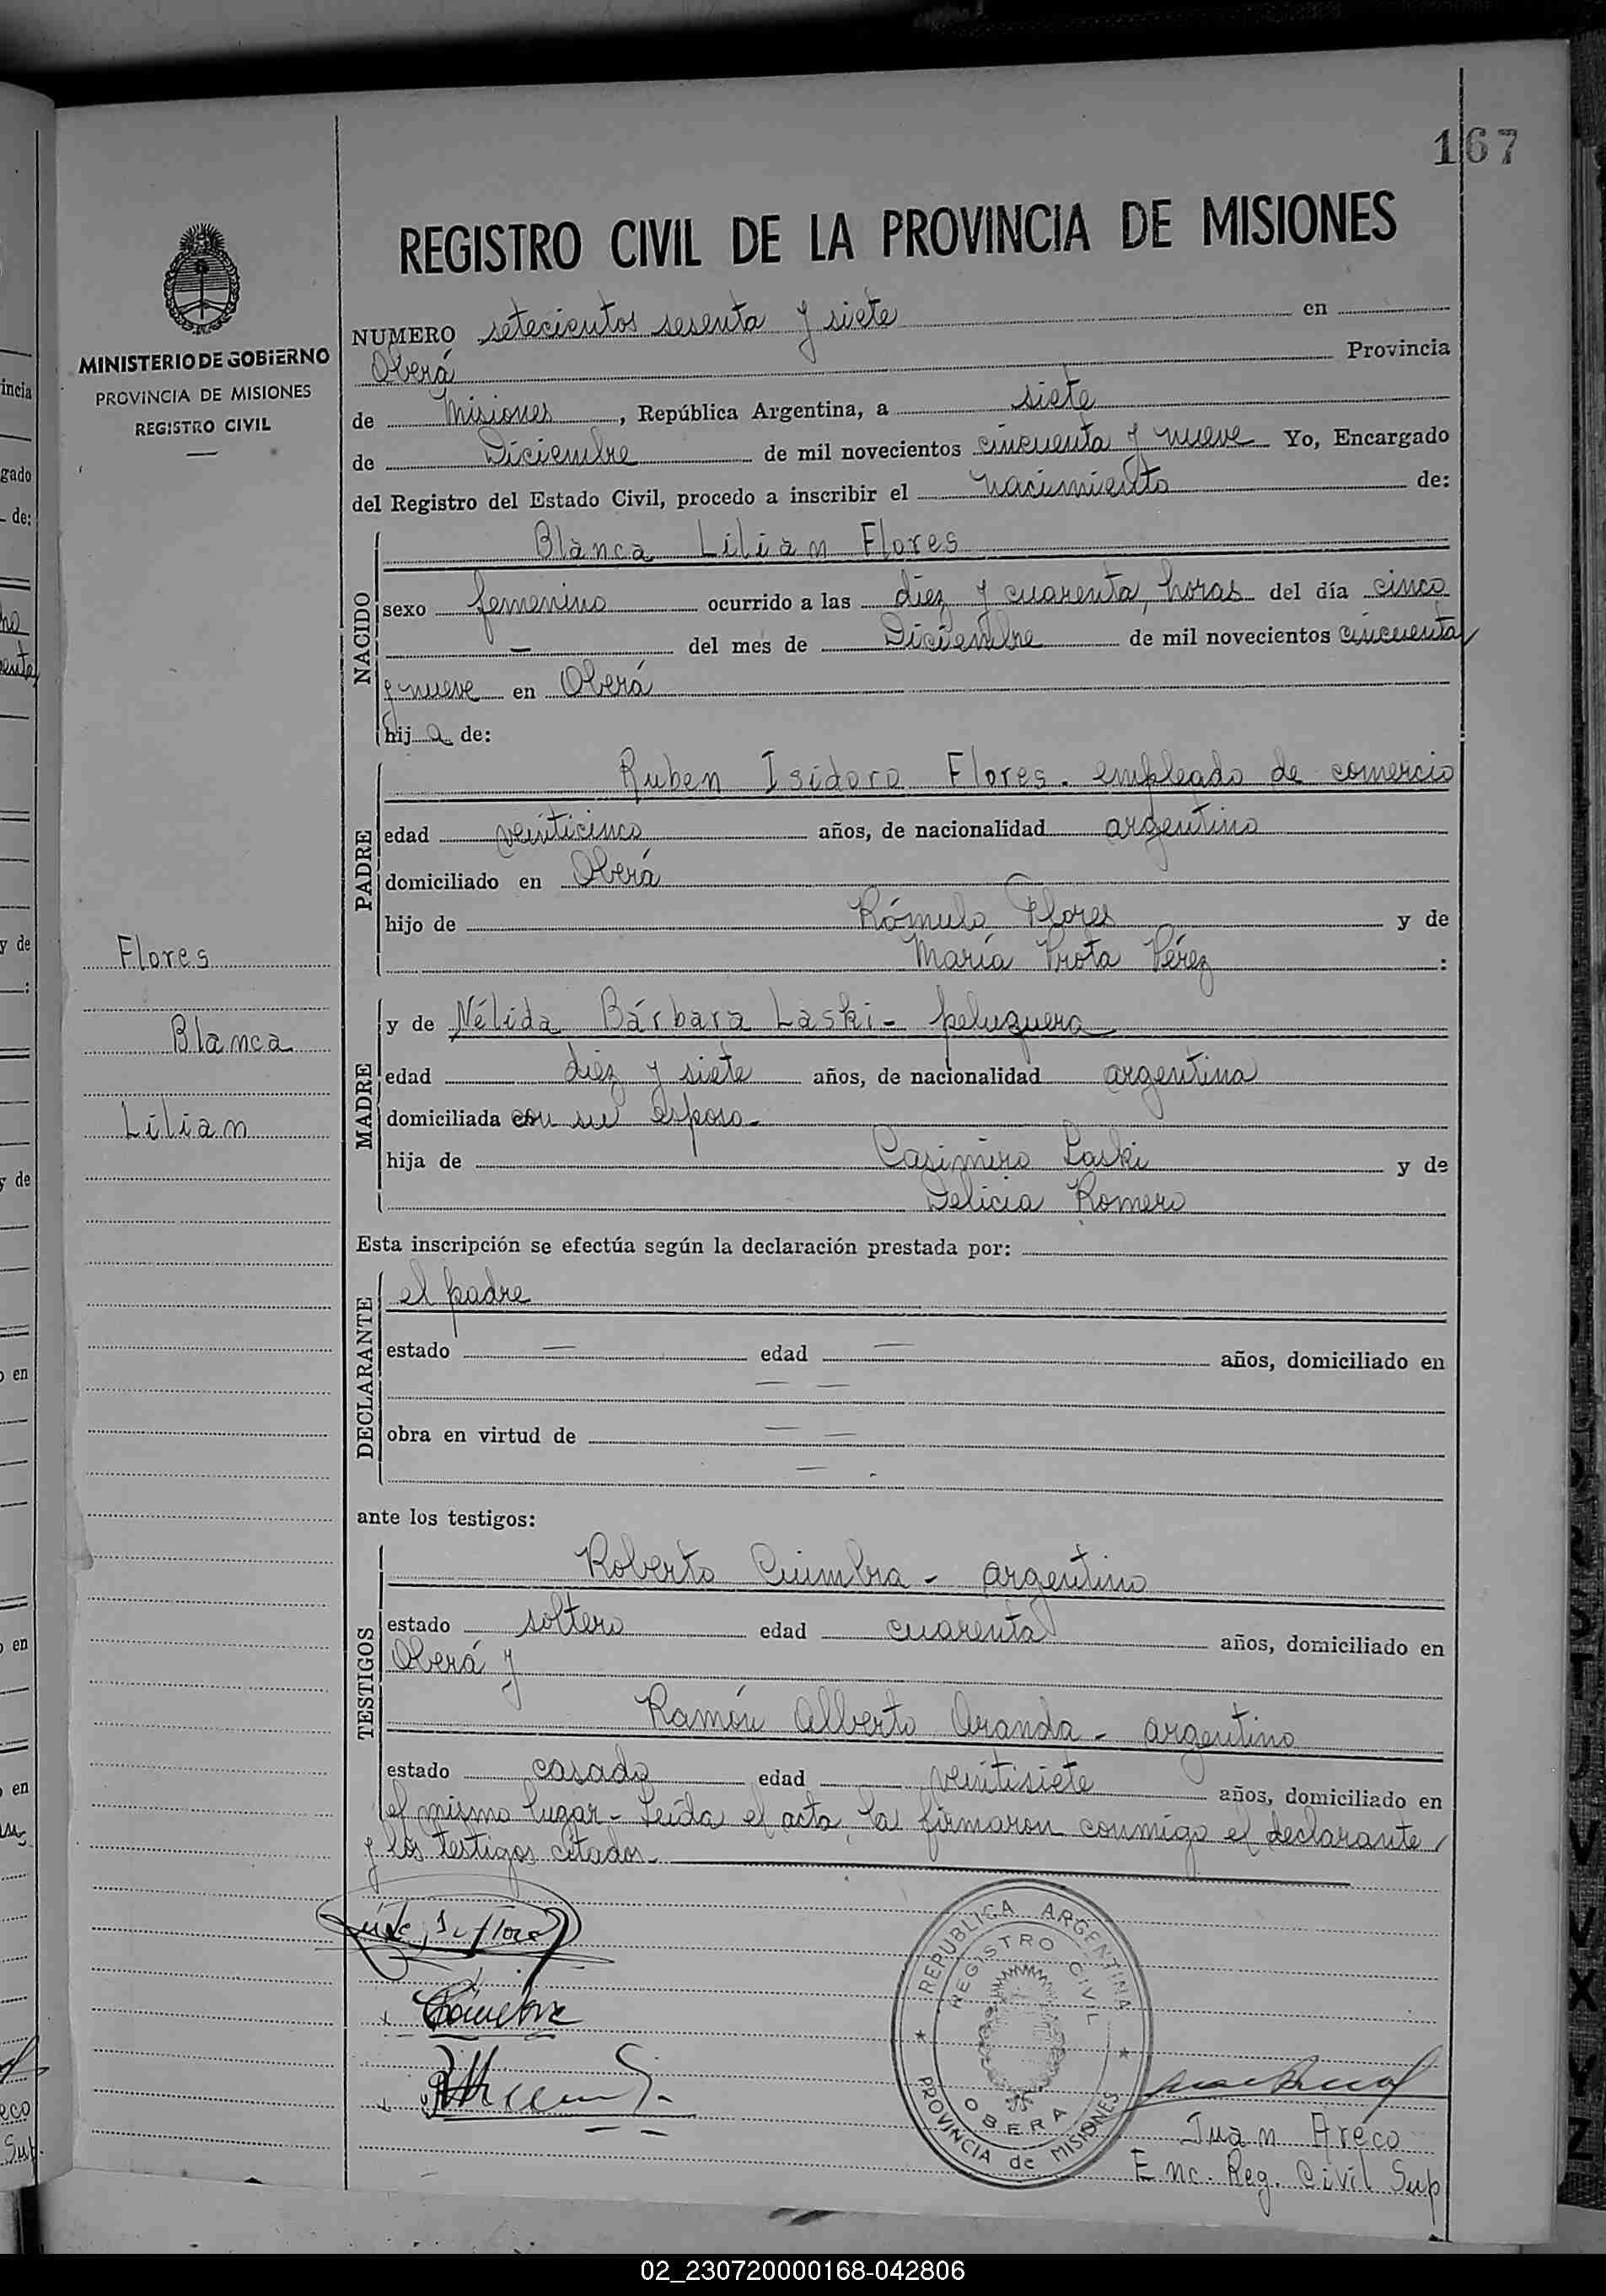 167
REGISTRO CIVIL DE LA PROVINCIA DE MISIONES
MINISTERIO DE GOBIERNO
PROVINCIA DE MISIONES
REGISTRO CIVIL
NUMERO setecientos sesenta y siete en
Oberá Provincia
de Misiones, República Argentina, a siete
de Diciembre de mil novecientos cincuenta y nueve Yo, Encargado
del Registro del Estado Civil, procedo a inscribir el nacimiento de:
NACIDO
Blanca Lilian Flores
sexo femenino ocurrido a las diez y cuarenta, horas del día cinco
— del mes de Diciembre de mil novecientos cincuenta
y nueve en Oberá
hija de:
PADRE
Ruben Isidoro Flores. empleado de comercio
edad veinticinco años, de nacionalidad argentino
domiciliado en Oberá
hijo de Rómulo Flores y de
María Prota Pérez :
MADRE
y de Nélida Bárbara Laski - peluquera
edad diez y siete años, de nacionalidad argentina
domiciliada con su esposo.
hija de Casimiro Laski y de
Delicia Romero
Flores
Blanca
Lilian
Esta inscripción se efectúa según la declaración prestada por:
DECLARANTE
el padre
estado — edad — años, domiciliado en
— —
obra en virtud de — —
—
ante los testigos:
TESTIGOS
Roberto Cuimbra - argentino
estado soltero edad cuarenta años, domiciliado en
Oberá y
Ramón Alberto Aranda - argentino
estado casado edad veintisiete años, domiciliado en
el mismo lugar - Leída el acta, la firmaron conmigo el declarante
y los testigos citados.
REPUBLICA ARGENTINA
REGISTRO CIVIL
OBERA
PROVINCIA de MISIONES
Juan Areco
Enc. Reg. Civil Sup
02_230720000168-042806